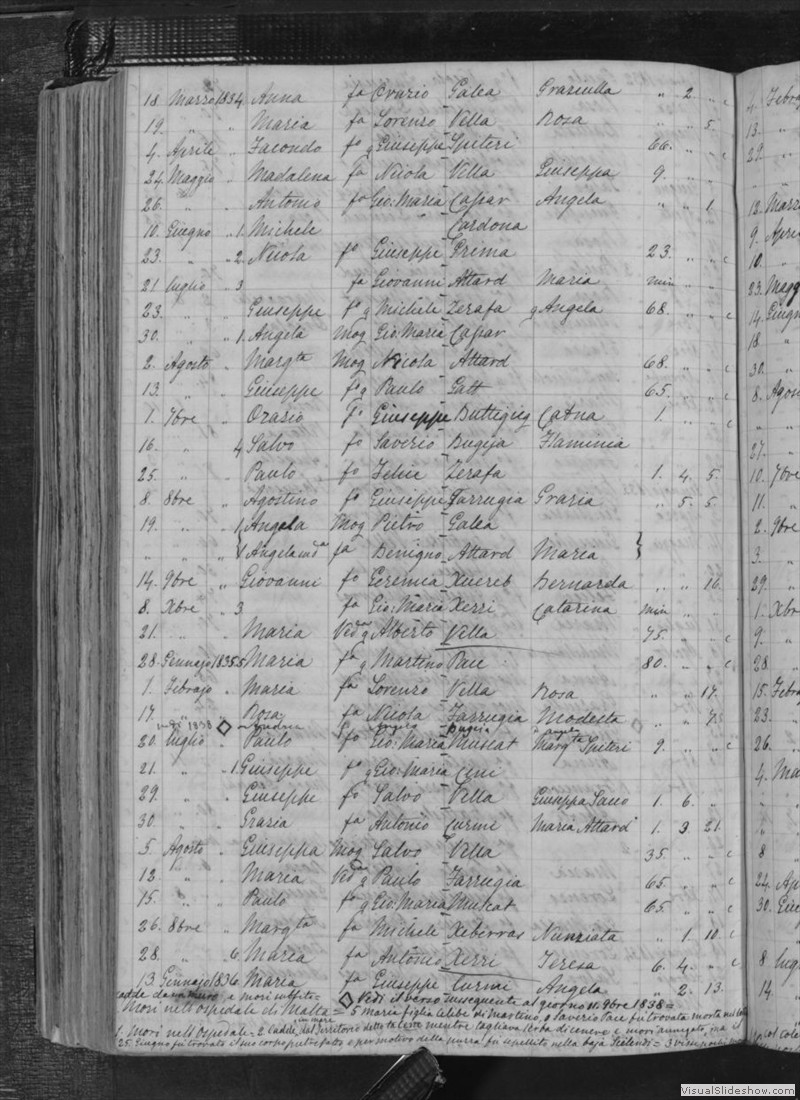 18. Marzo 1834 Anna fa Orazio Galea Graziella " 2. " c
19. " " Maria fa Lorenzo Villa Rosa " " 5.
4. Aprile " Facondo fo q Giuseppe Spiteri 66. " " c
24. Maggio " Madalena fa Nicola Villa Giuseppa 9. " "
26. " " Antonio fo Gio: Maria Capar Angela " " 1
10. Giugno " 1. Michele " Cardona
23. " " 2. Nicola fo Giuseppe Grima 23. " " c
21 luglio " 3 fa Giovanni Attard Maria min " "
23. " " Giuseppe fo q Michele Zerafa q Angela 68. " " c
30. " " 1. Angela Mog Gio: Maria Capar
2. Agosto " Margta Mog Nicola Attard 68. " " c
13. " " Giuseppe fo q Paulo Gatt 65. " " c
1. 7bre " Orazio fo Giuseppe Buttigieg Catna 1. " " c
16. " 4 Salvo fo Saverio Bugeja Flaminia
25. " " Paulo fo Felice Zerafa 1. 4. 5.
8. 8bre " Agostino fo Giuseppe Farrugia Grazia " 5. 5.
19. " 1 Angela Mog Pietro Galea
" " " Angela fa Benigno Attard Maria
14. 9bre " Giovanni fo Geremia Xuereb Bernarda " " 16.
8. Xbre " 3 fa Gio: Maria Xerri Catarina min " "
21. " " Maria Veda q Alberto Villa 75. " " c
28. Gennajo 1835 5 Maria fa q Martino Pace 80. " " c
1. Febrajo " Maria fa Lorenzo Villa Rosa " " 17.
17. " " Rosa fa Nicola Farrugia Modesta ◇ " " 7.
1838 ◇
20. luglio " Paulo fo Gio: Maria Muscat Margta Spiteri 9. " " c
21. " " 1 Giuseppe fo q Gio: Maria Cini
29. " " Giuseppe fo Salvo Villa Giuseppa 1. 6. "
30. " " Grazia fa Antonio Curmi Maria Attard 1. 9. 21.
5. Agosto " Giuseppa Mog Salvo Villa 35. " " c
12. " " Maria Veda q Paulo Farrugia 65. " " c
15. " " Paulo fo q Gio: Maria Muscat 65. " " c
26. 8bre " Margta fa Michele Xeberras Nunziata " 1. 10. c
28. " 6 Maria fa Antonio Xerri Teresa 6. 4. " c
13. Gennajo 1836 Maria fa Giuseppe Curmi Angela " 2. 13.
cadde da un muro e mori subito =
◇ Vedi il verso susseguente al giorno 11. 9bre 1838 =
Mori nell'ospedale di Malta = 5 Maria figlia celibe di Martino, e Saveria Pace fu trovata morta
in mare
1. Mori nell'Ospedale = 2 Cadde, dal Territorio detto mentre tagliava erba di cenere e mori annegato, ma il
25. Giugno fu trovato il suo corpo putrefatto e per motivo della fu sepellito nella baja Xelendi = 3
4. Febra
13.
29.
12. Marz
9. Apri
10.
23. Magg
14. Giugn
18.
30.
8. Agos
27.
10. 7bre
11.
2. 9bre
3.
29.
1. Xbr
9.
28.
15. Febra
23.
26.
4. Ma
8
24. Ap
30. Giu
8 lug
14.
VisualSlideshow.com